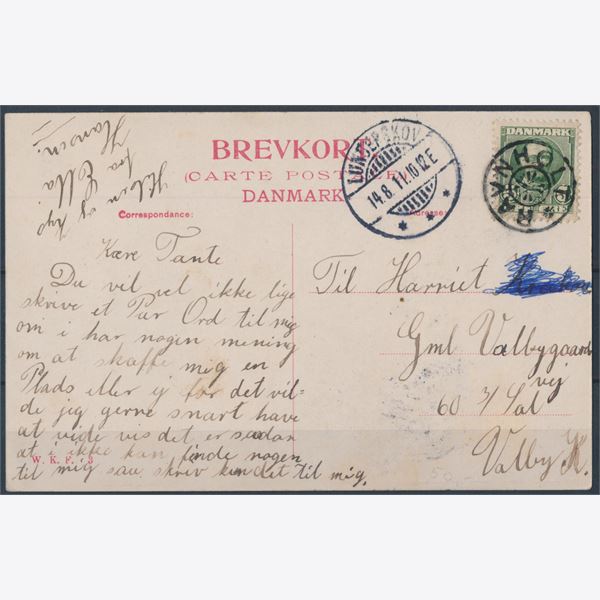 BREVKORT
(CARTE POSTALE)
DANMARK
Correspondance:
Adresse:
LUNDERSKOV
14.8.11.10-12E
DANMARK
RAVNHOLT
Kære Tante
Du vil vel ikke lige
skrive et Par Ord til mig
om i har nogen mening
om at skaffe mig en
Plads eller ej for det vil=
de jeg gerne snart have
at vide vis det er saadan
at i ikke kan finde nogen
til mig saa skriv kun det til mig.
Hilsen og kys
fra Ella
Hansen.
Til Harriet
Gml Valbygaard
vej
60 3/ Sal
Valby K.
W. K. F. 3
50